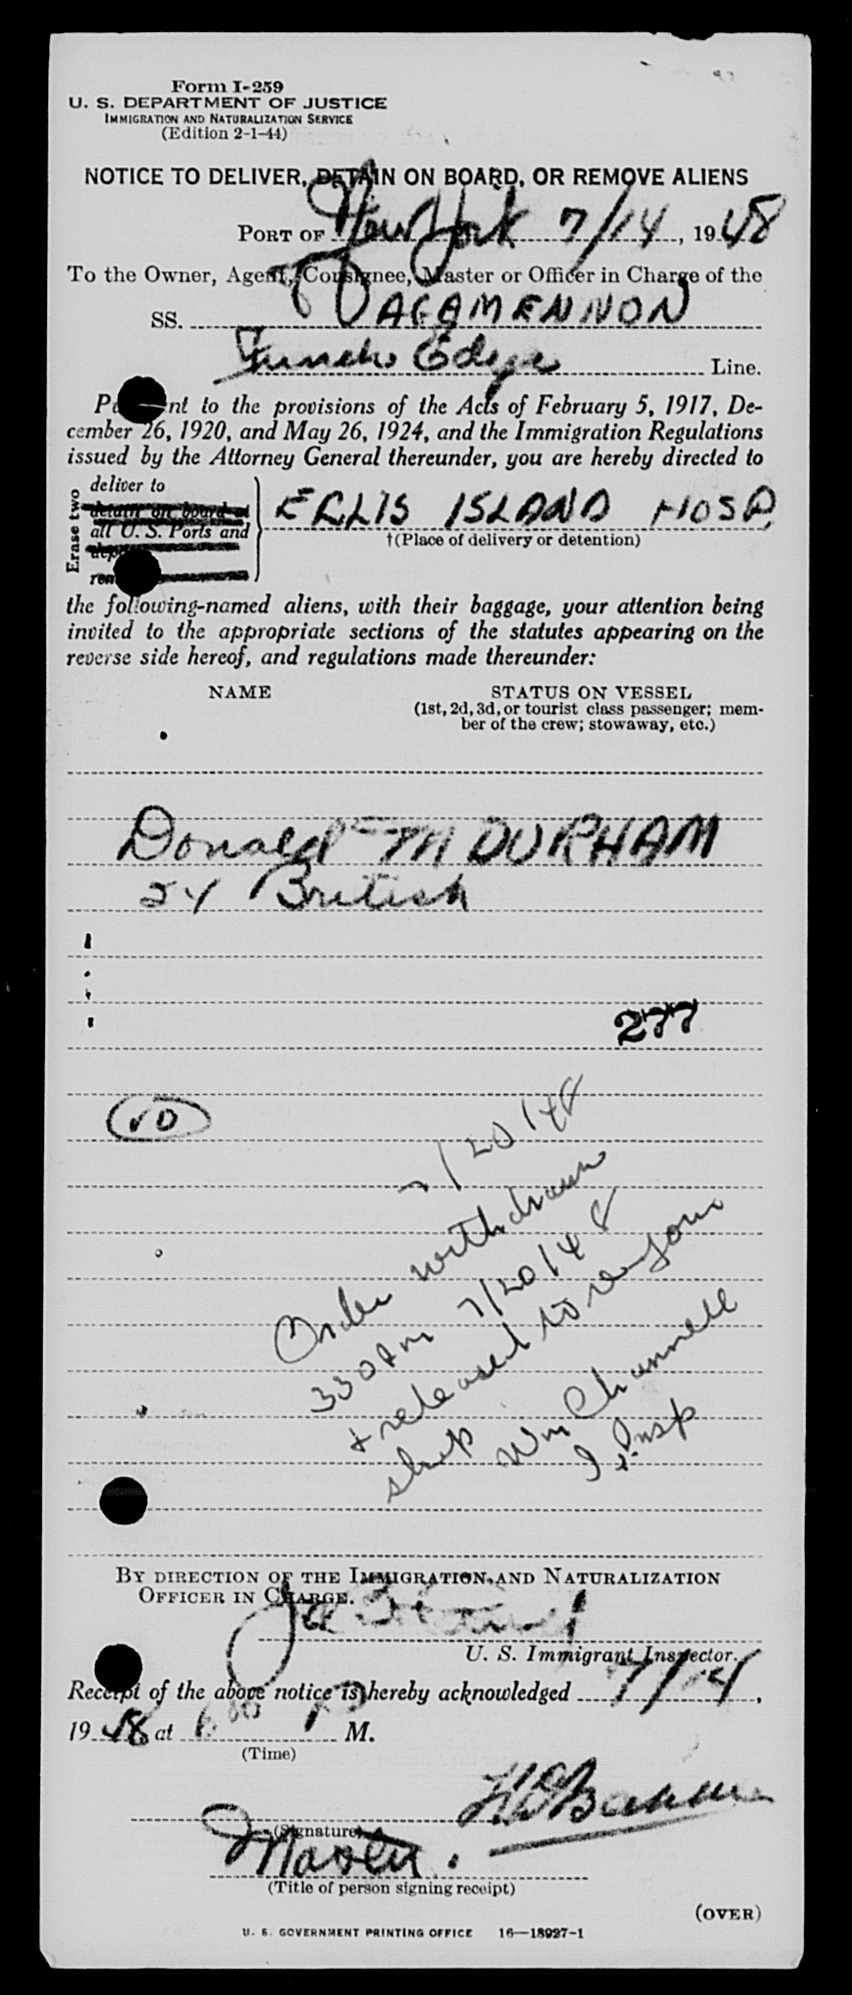 Form I-259
U. S. DEPARTMENT OF JUSTICE
IMMIGRATION AND NATURALIZATION SERVICE
(Edition 2-1-44)
NOTICE TO DELIVER, DETAIN ON BOARD, OR REMOVE ALIENS
PORT OF New York 7/14, 1948
To the Owner, Agent, Consignee, Master or Officer in Charge of the
SS. AGAMENNON
Funch Edye Line.
Pursuant to the provisions of the Acts of February 5, 1917, De-
cember 26, 1920, and May 26, 1924, and the Immigration Regulations
issued by the Attorney General thereunder, you are hereby directed to
Erase two
deliver to
detain on board at
all U. S. Ports and
ELLIS ISLAND HOSP.
†(Place of delivery or detention)
the following-named aliens, with their baggage, your attention being
invited to the appropriate sections of the statutes appearing on the
reverse side hereof, and regulations made thereunder:
NAME STATUS ON VESSEL
(1st, 2d, 3d, or tourist class passenger; mem-
ber of the crew; stowaway, etc.)
Donald M DURHAM
24 British
277
VD
7/20/48
Order withdrawn
330 PM 7/20/48
+ released to rejoin
ship Wm Channell
I Insp
BY DIRECTION OF THE IMMIGRATION AND NATURALIZATION
OFFICER IN CHARGE.
U. S. Immigrant Inspector.
Receipt of the above notice is hereby acknowledged 7/14,
1948 at P M.
(Time)
(Signature)
Master.
(Title of person signing receipt)
(OVER)
U. S. GOVERNMENT PRINTING OFFICE 16—18927-1